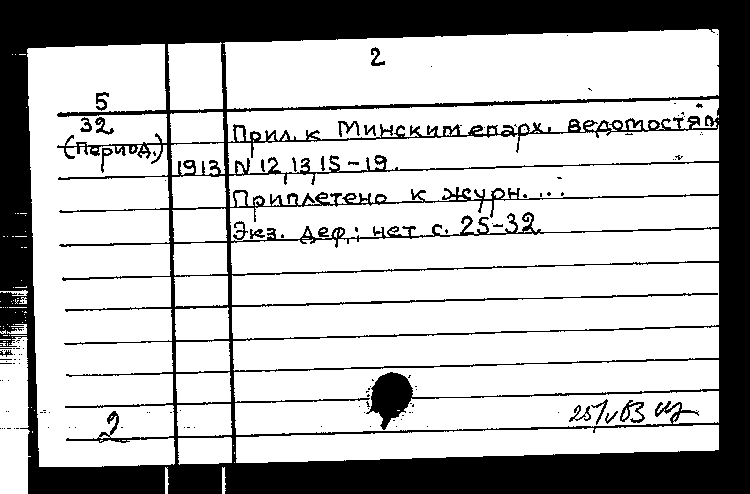 2
5
32
(Период.)
Прил. к Минским епарх. ведомостям
1913 N 12, 13, 15-19.
Приплетено к журн. ...
Экз. деф.: нет с. 25-32.
2